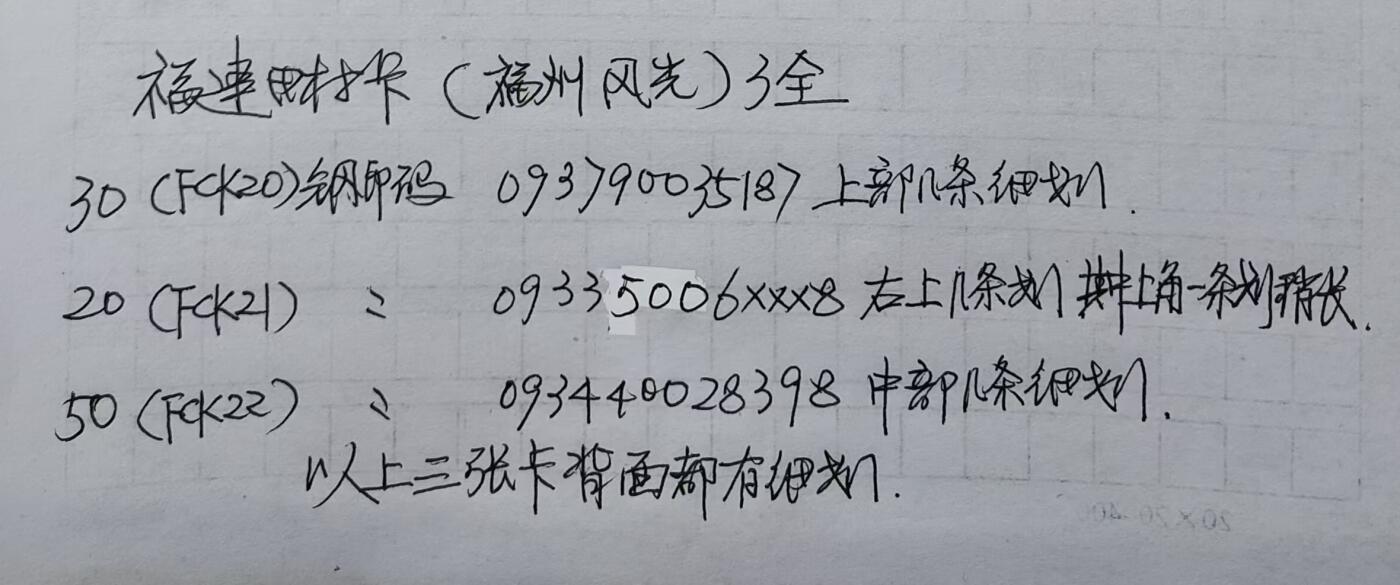 福建田村卡(福州风光)3全
30(FCK20)钢印码 093790035187 上部几条细划.
20(FCK21) 〃 09335006xxx8 右上几条划 其中上角一条划稍长.
50(FCK22) 〃 093440028398 中部几条细划.
以上三张卡背面都有细划.
20×20=400